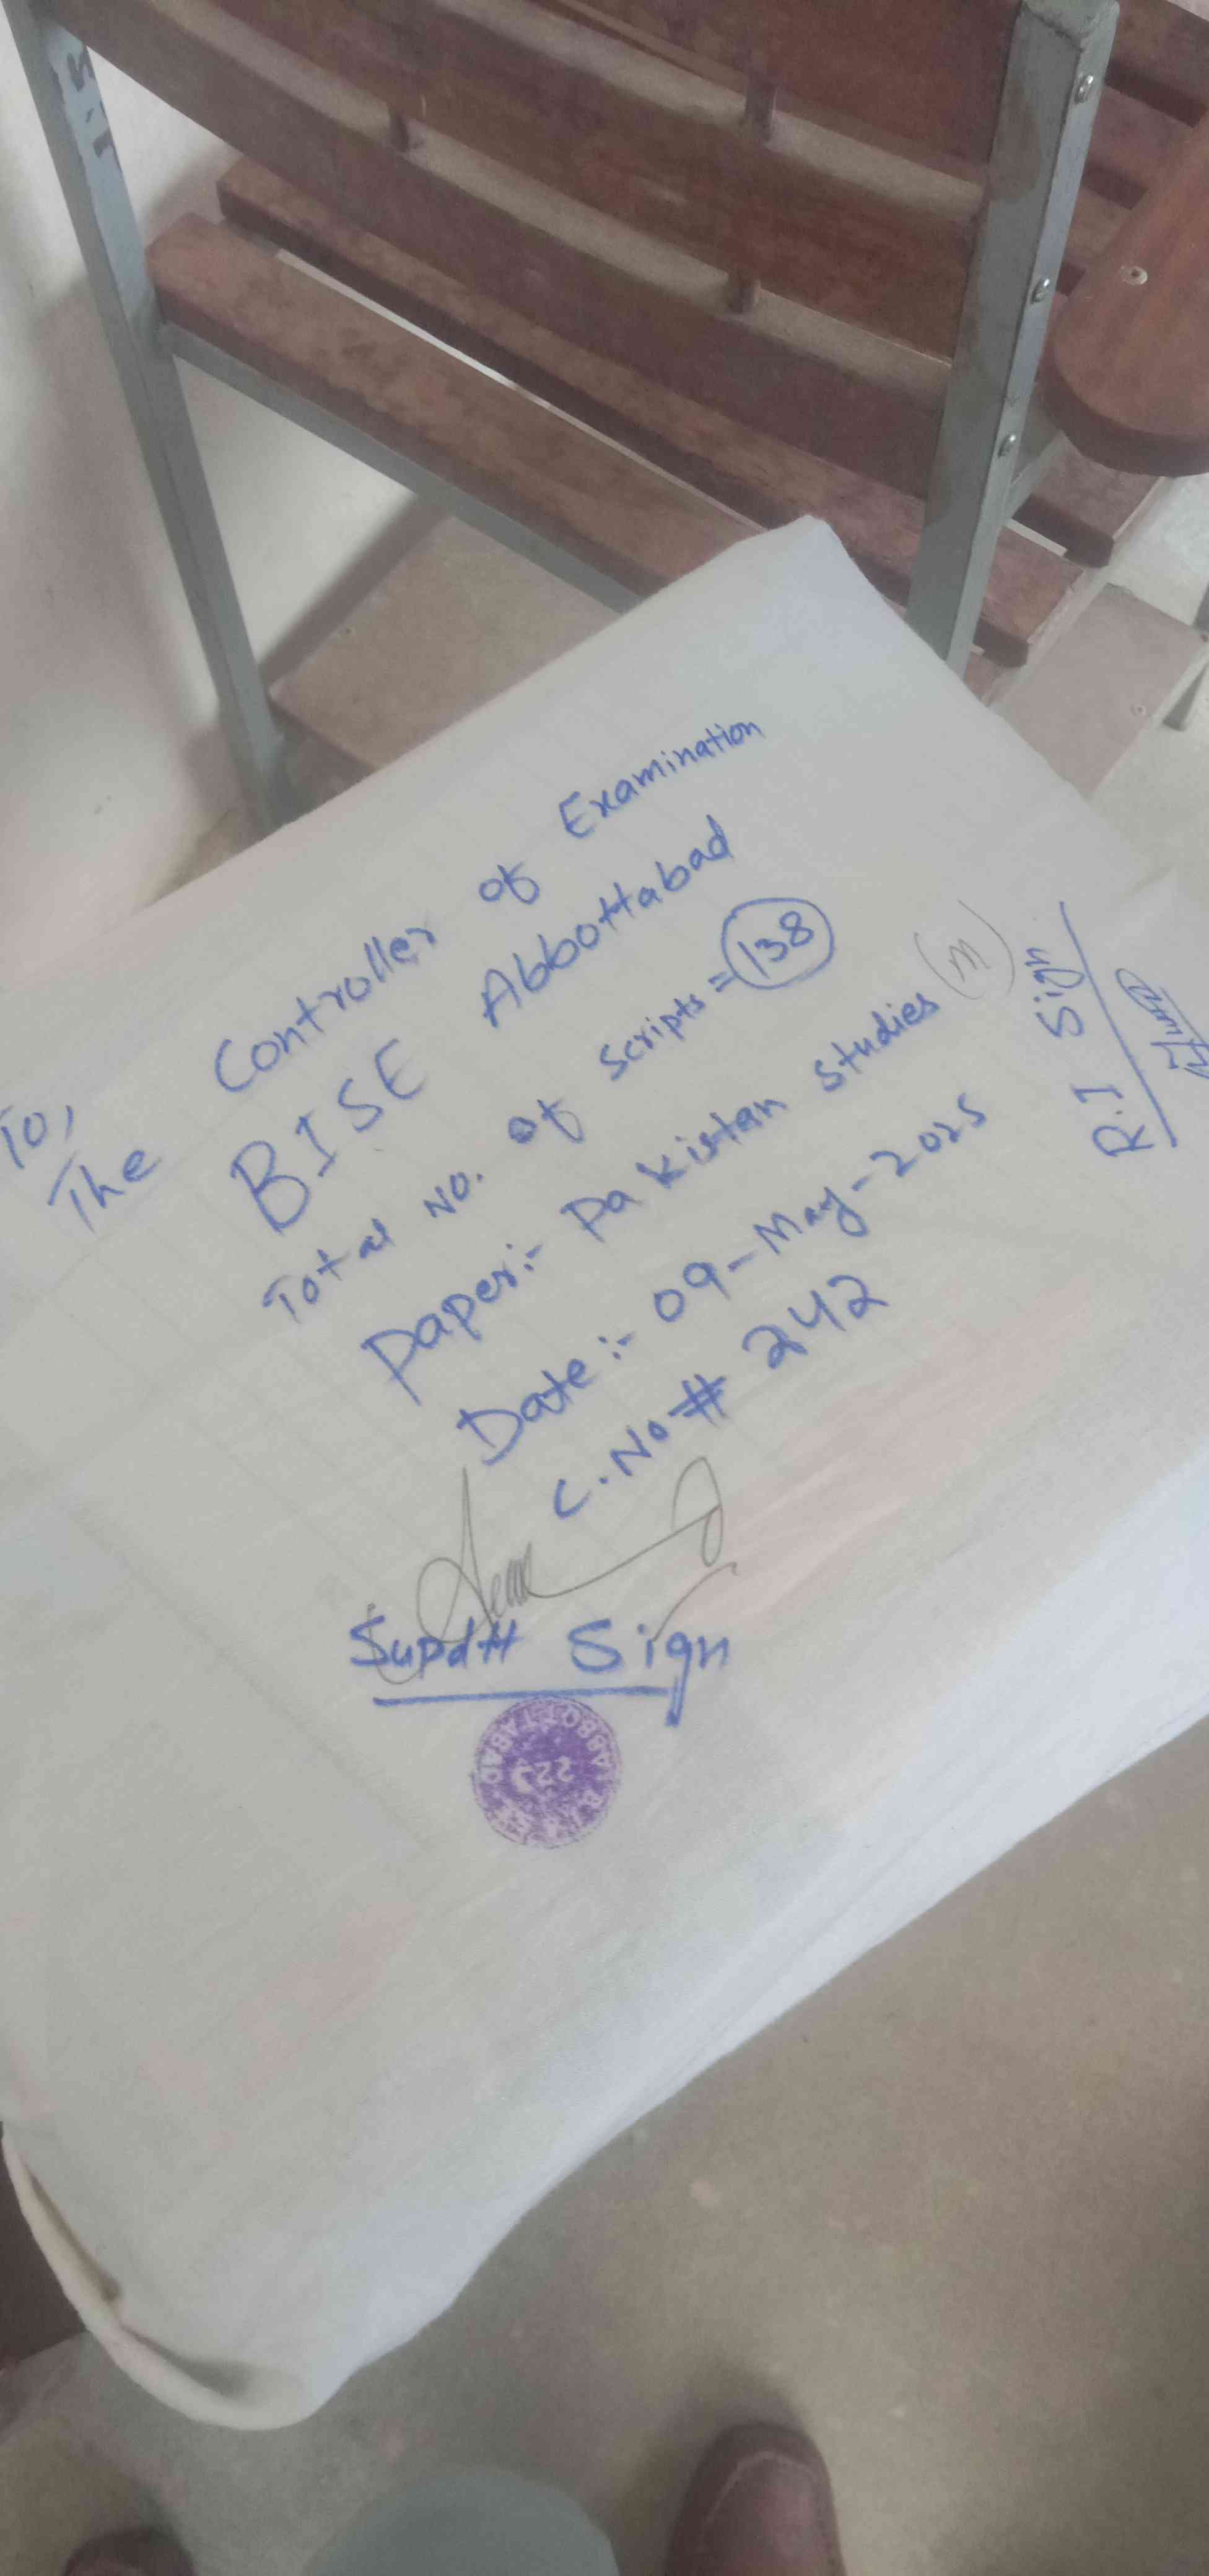 To,
The Controller of Examination
BISE Abbottabad
Total No. of scripts = 138
Paper:- Pakistan Studies (M)
Date:- 09-May-2025
C.No# 242
Supdtt Sign
R.I Sign
ABBOTTABAD
22